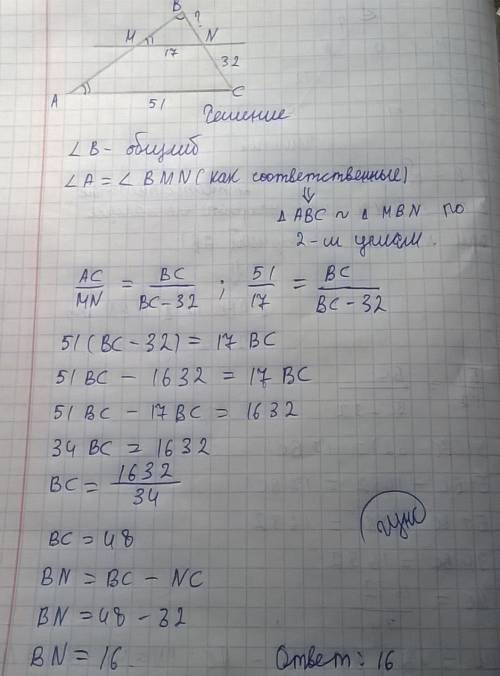 B
?
M
N
17
32
A
51
C
Решение
∠B - общий
∠A = ∠BMN (как соответственные)
⇓
Δ ABC ~ Δ MBN по
2-м углам.
AC/MN = BC/BC-32 ; 51/17 = BC/BC-32
51(BC-32) = 17 BC
51 BC - 1632 = 17 BC
51 BC - 17 BC = 1632
34 BC = 1632
BC = 1632/34
BC = 48
BN = BC - NC
BN = 48 - 32
BN = 16
Ответ: 16